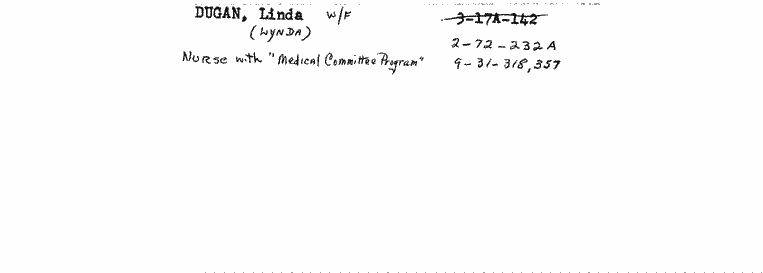 DUGAN, Linda W/F 3-17A-142
(LYNDA) 2-72-232A
Nurse with "Medical Committee Program" 9-31-318,357